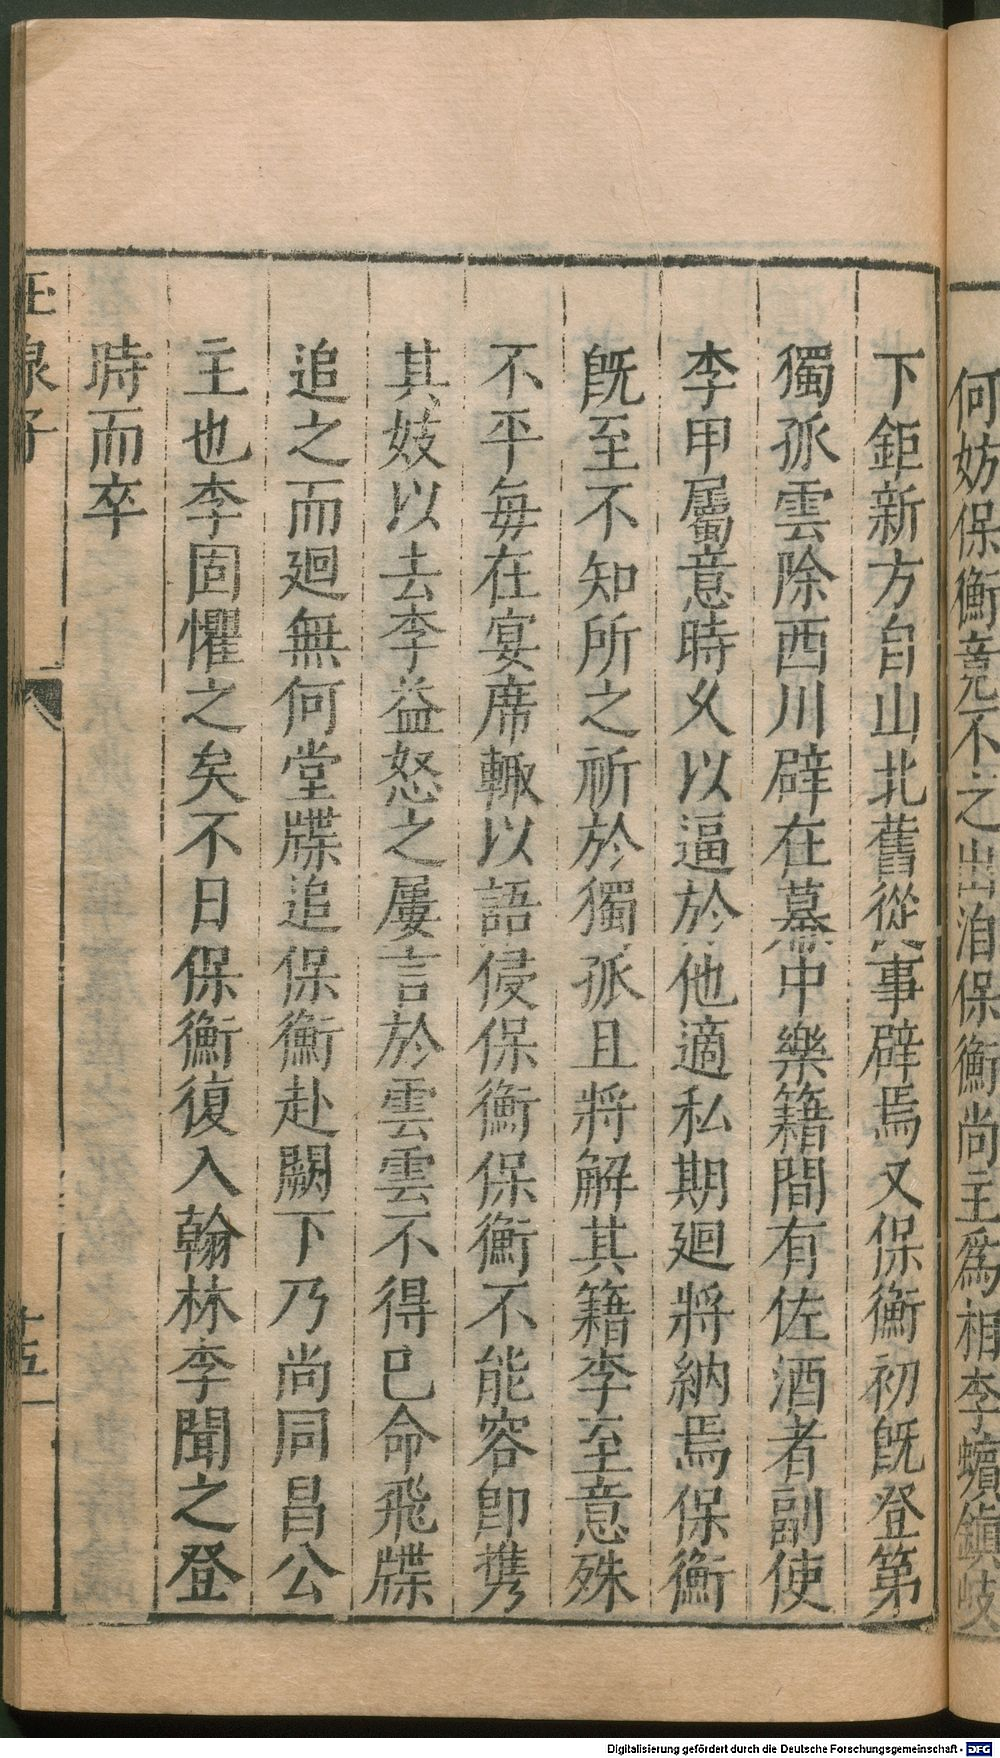 何妨保衡竟不之出洎保衡尚主為相李蠙鎮岐
下鉅新方自山北舊從事辟焉又保衡初旣登第
獨孤雲除西川辟在幕中樂籍間有佐酒者副使
李甲屬意時久以逼於他適私期廻將納焉保衡
旣至不知所之祈於獨孤且將解其籍李至意殊
不平每在宴席輙以語侵保衡保衡不能容卽携
其妓以去李益怒之屢言於雲雲不得已命飛牒
追之而廻無何堂牒追保衡赴闕下乃尚同昌公
主也李固懼之矣不日保衡復入翰林李聞之登
時而卒
玉泉子
十五
Digitalisierung gefördert durch die Deutsche Forschungsgemeinschaft - DFG